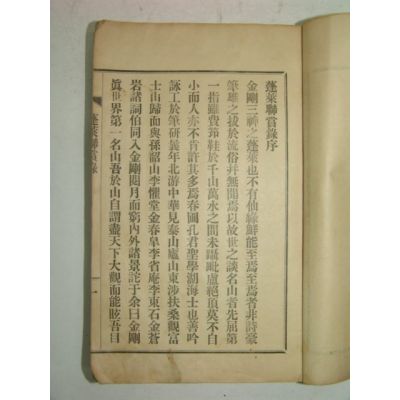 蓬萊聯賞錄序
金剛三神之蓬萊也不有仙緣鮮能至焉至焉者非詩豪
筆雄之拔於流俗幷無聞焉以故世之談名山者先屈第
一指雖費筇鞋於千山萬水之間未躡毗盧絕頂莫不自
小而人亦不肯許其多焉春圃孔君聖學湖海士也善吟
詠工於筆研曩年北游中華見泰山廬山東涉扶桑觀富
士山歸而與孫韶山李懼堂金春阜李省庵李東石金蒼
岩諸詞伯同入金剛閱月而窮內外諸景詫于余曰金剛
眞世界第一名山吾於山自謂盡天下大觀而能眩吾目
蓬萊聯賞錄
一